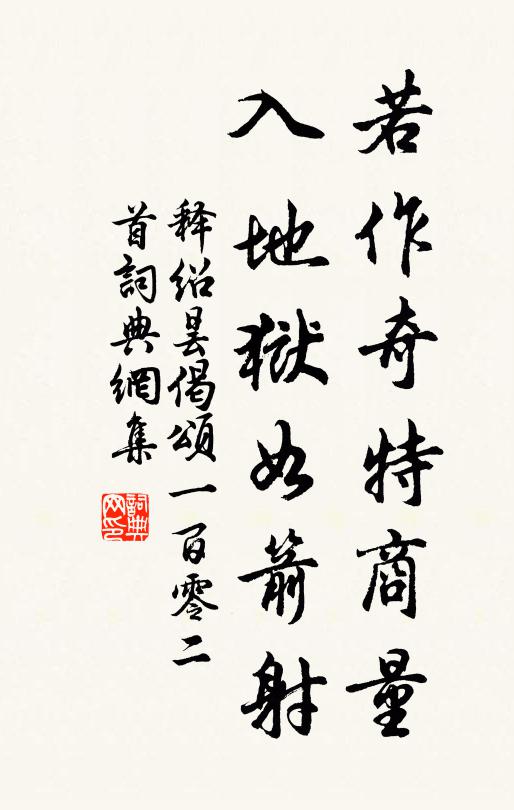 若作奇特商量
入地獄如箭射
释绍昙偈頌一百零二
首詞典網集
詞典
网印